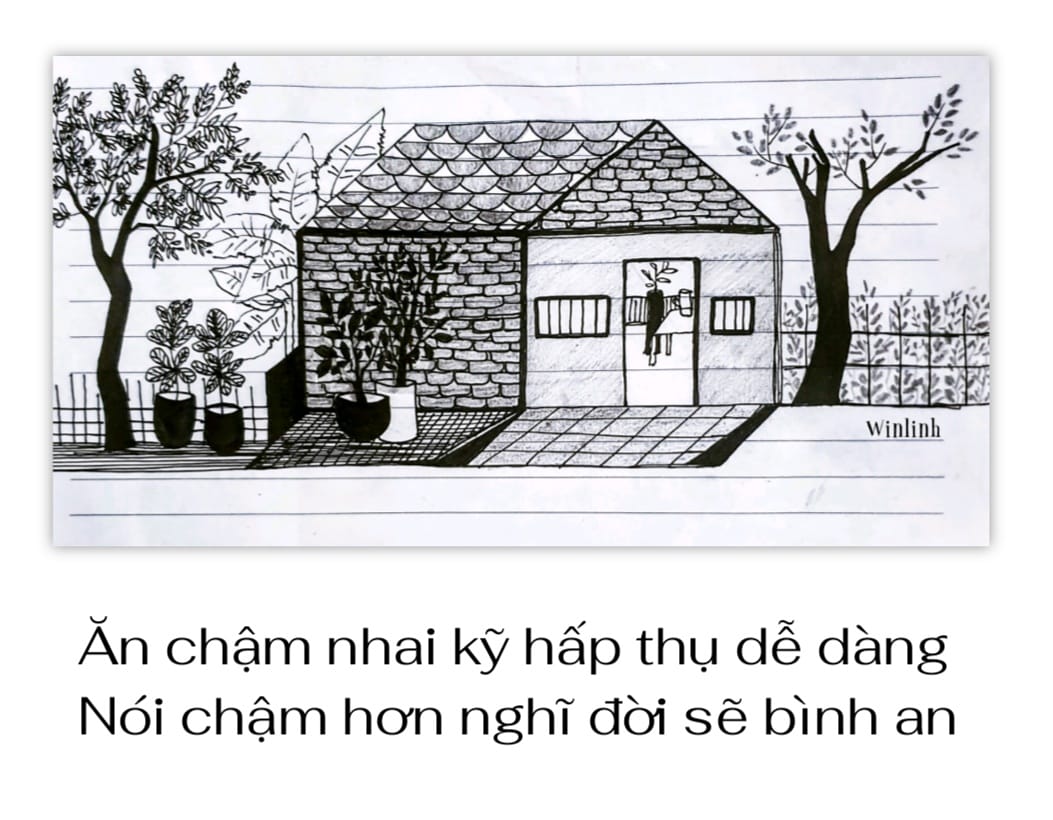 Winlinh
Ăn chậm nhai kỹ hấp thụ dễ dàng
Nói chậm hơn nghĩ đời sẽ bình an